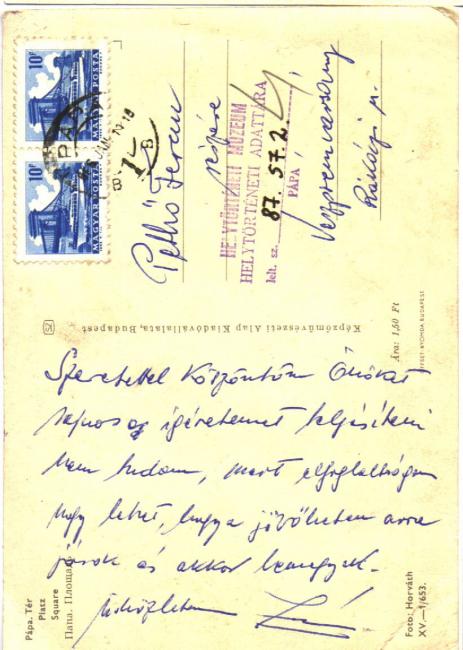 10f
MAGYAR POSTA
10f
MAGYAR POSTA
PÁPA
1
B
Pethő Ferenc
részére
HELYTÖRTÉNETI MÚZEUM
HELYTÖRTÉNETI ADATTÁRA
lelt. sz. 87.57.2.
PÁPA
Veszprémvarsány
Rákóczi u.
Képzőművészeti Alap Kiadóvállalata, Budapest
Ára: 1,50 Ft
OFFSET-NYOMDA BUDAPEST
Szeretettel köszöntöm Önöket
sajnos az igéretemet teljesíteni
nem tudom, mert elfoglaltságom
úgy lehet, hogy a jövőhéten arra
járok és akkor bemegyek.
Üdvözlettel
Pápa. Tér
Platz
Square
Папа. Площадь
Foto: Horváth
XV.—1/653.